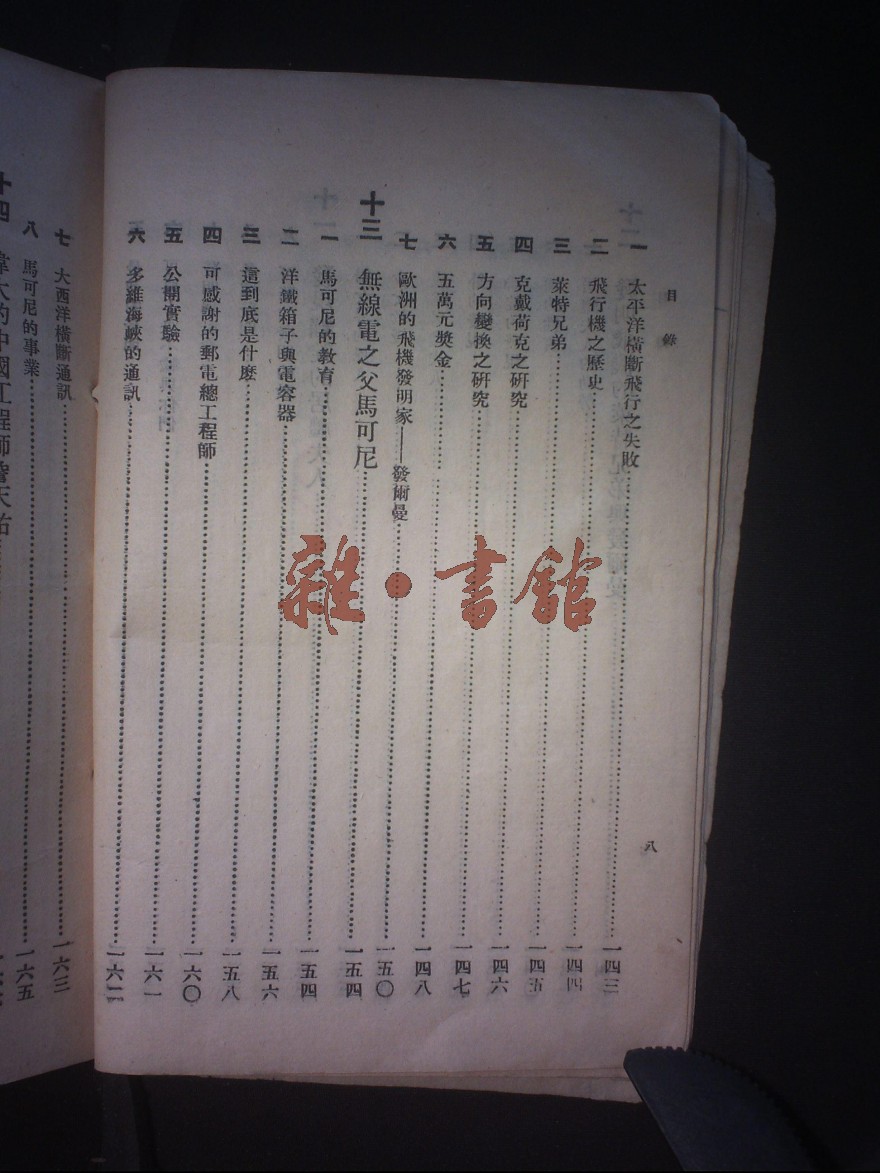 目錄
八
一 太平洋橫斷飛行之失敗……一四三
二 飛行機之歷史……一四四
三 萊特兄弟……一四五
四 克戴荷克之研究……一四六
五 方向變換之研究……一四七
六 五萬元獎金……一四八
七 歐洲的飛機發明家——發爾曼……一五〇
十三 無線電之父馬可尼……一五四
一 馬可尼的教育……一五四
二 洋鐵箱子與電容器……一五六
三 這到底是什麼……一五八
四 可感謝的郵電總工程師……一六〇
五 公開實驗……一六一
六 多維海峽的通訊……一六二
七 大西洋橫斷通訊……一六三
八 馬可尼的事業……一六五
十四 偉大的中國工程師詹天佑
雜·書館